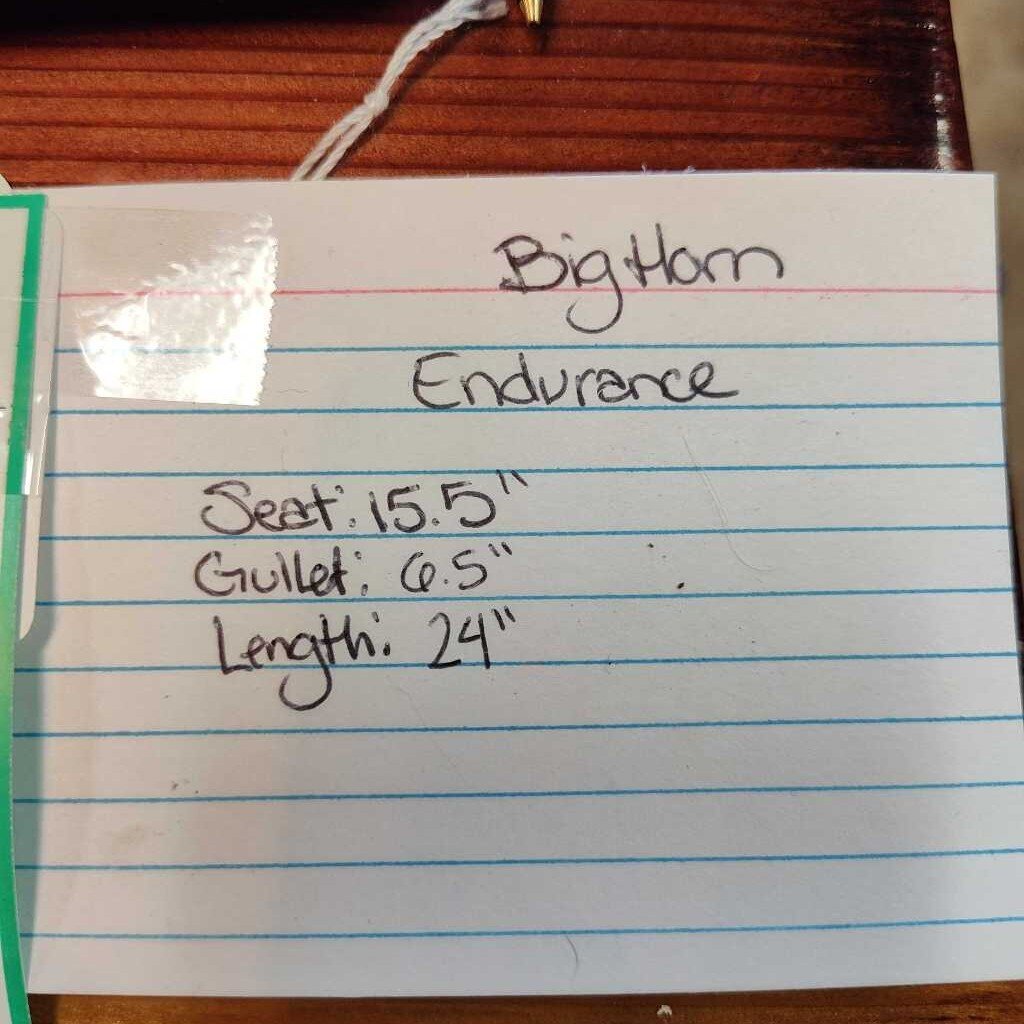 Big Horn
Endurance
Seat: 15.5"
Gullet: 6.5"
Length: 24"